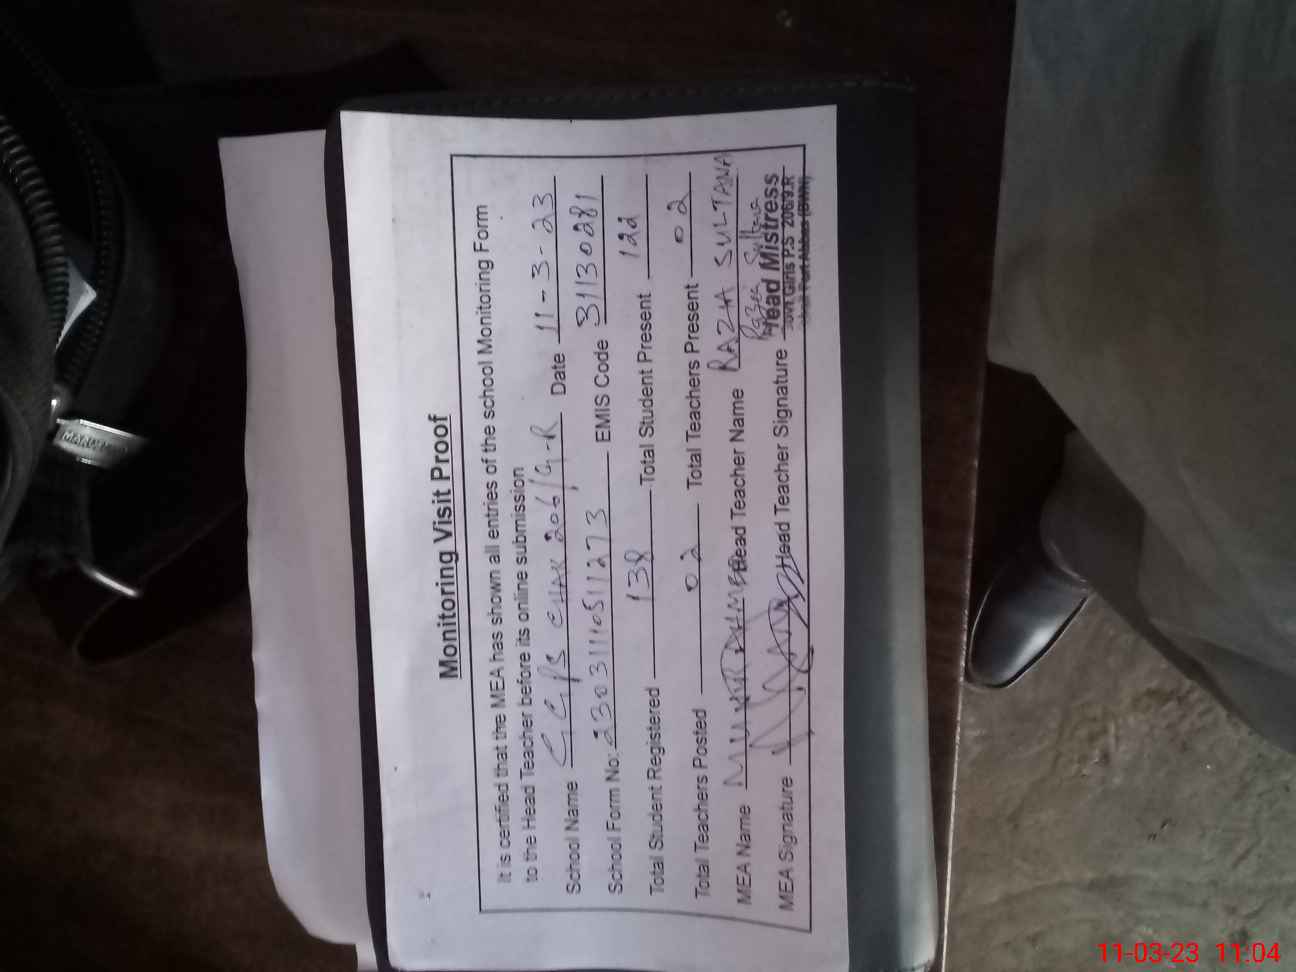 Monitoring Visit Proof
It is certified that the MEA has shown all entries of the school Monitoring Form
to the Head Teacher before its online submission
School Name GGPS CHAK 206/9-R Date 11-3-23
School Form No: 23031110511273 EMIS Code 31130281
Total Student Registered 138 Total Student Present 122
Total Teachers Posted 02 Total Teachers Present 02
MEA Name MUNIR AHMED Head Teacher Name RAZIA SULTANA
MEA Signature Head Teacher Signature Razia Sultana
Head Mistress
Govt Girls P.S 206/9.R
Fort Abbas (BWN)
11-03-23 11:04